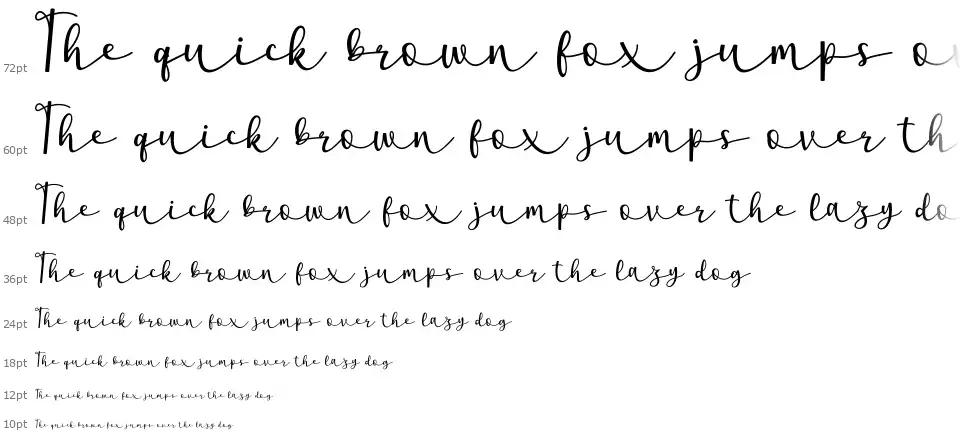 72pt The quick brown fox jumps ov
60pt The quick brown fox jumps over th
48pt The quick brown fox jumps over the lazy do
36pt The quick brown fox jumps over the lazy dog
24pt The quick brown fox jumps over the lazy dog
18pt The quick brown fox jumps over the lazy dog
12pt The quick brown fox jumps over the lazy dog
10pt The quick brown fox jumps over the lazy dog